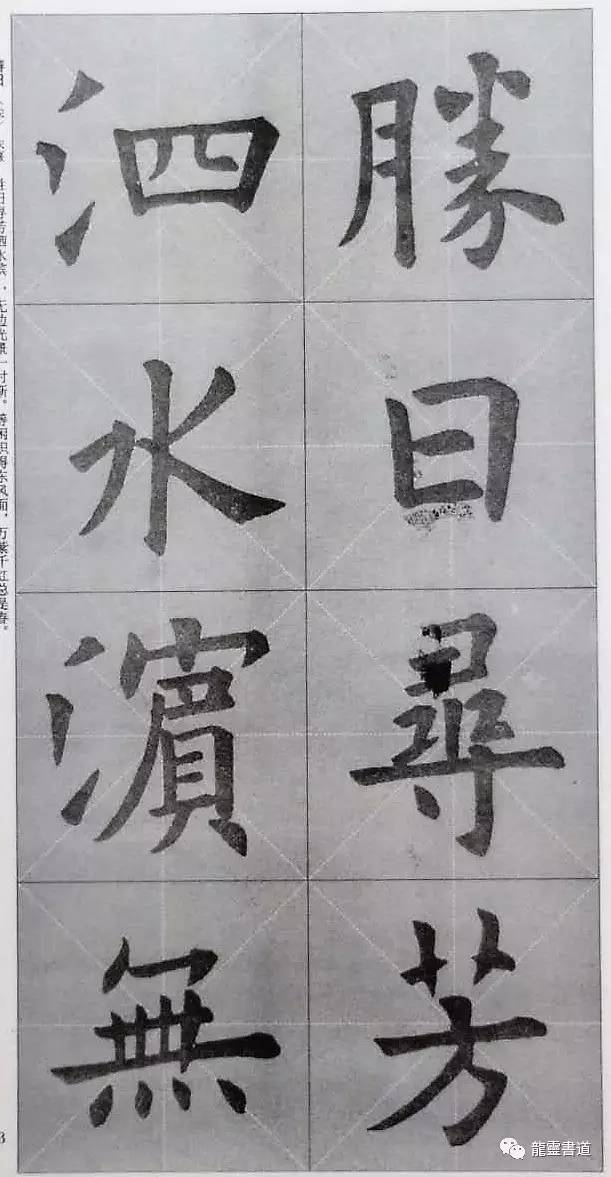 勝日尋芳
泗水濱無
春日（宋）朱熹 胜日寻芳泗水滨，无边光景一时新。等闲识得东风面，万紫千红总是春。
3
龍靈書道